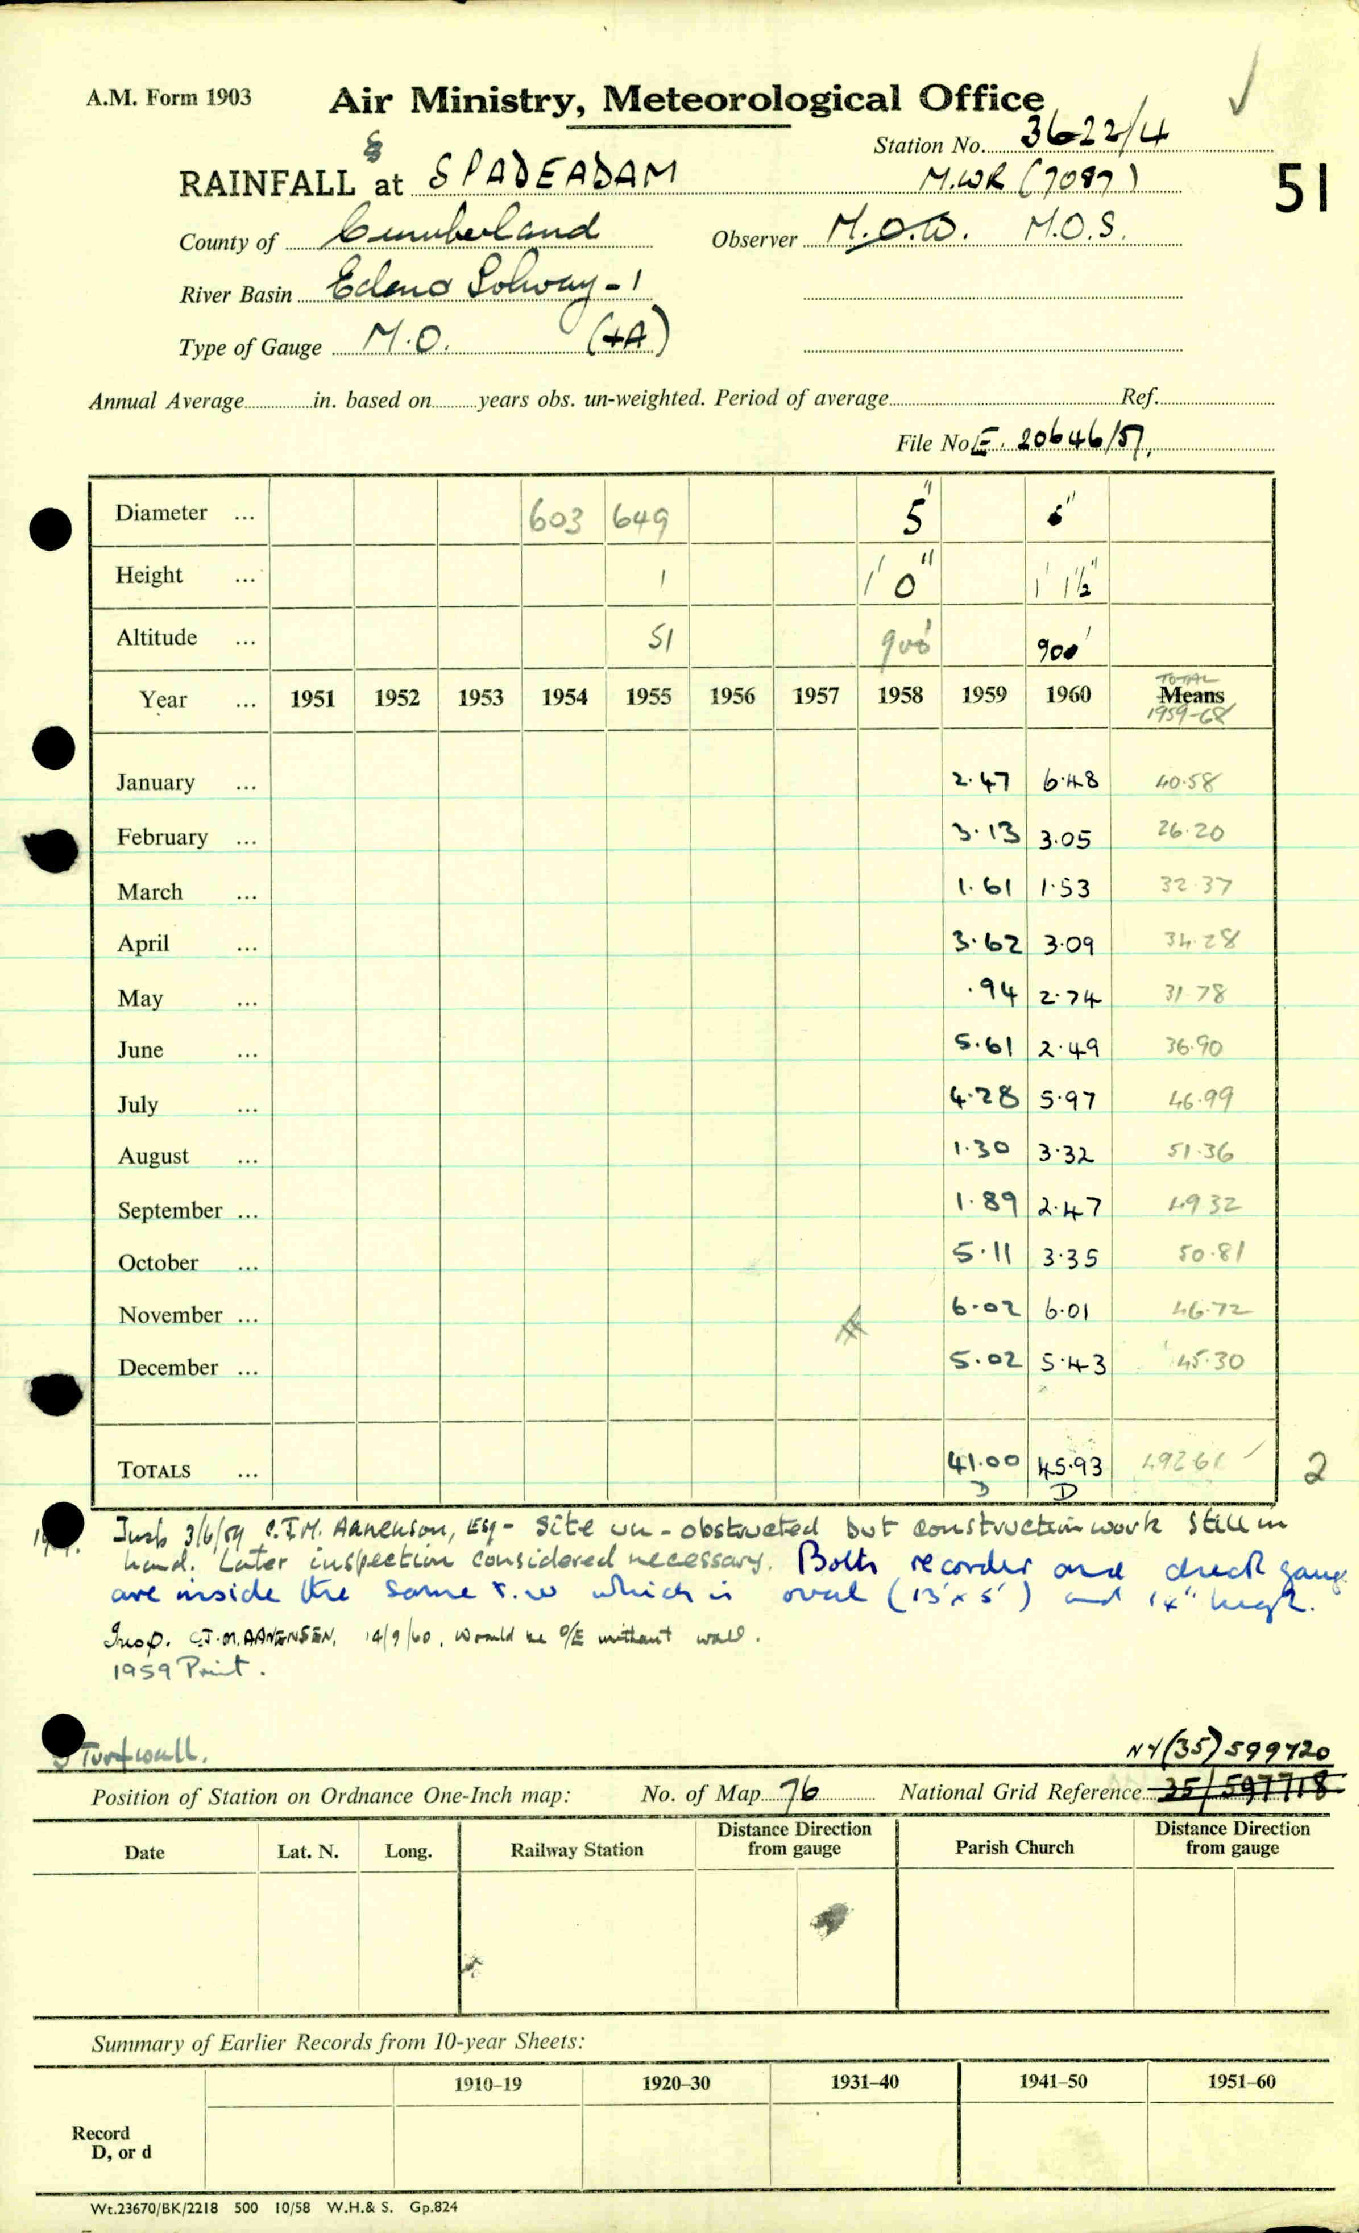 A.M. Form 1903 Air Ministry, Meteorological Office
Station No. 3622/4
RAINFALL at SPADEADAM M.WR (7087) 51
County of Cumberland Observer M.O.W. M.O.S.
River Basin Eden & Solway - 1
Type of Gauge M.O. (+A)
Annual Average in. based on years obs. un-weighted. Period of average Ref.
File No E. 20646/57.
Diameter ... 603 649 5" 5"
Height ... 1 1' 0" 1' 1½"
Altitude ... 51 900' 900'
Year ... 1951 1952 1953 1954 1955 1956 1957 1958 1959 1960 TOTAL Means 1959-68
January ... 2.47 6.48 40.58
February ... 3.13 3.05 26.20
March ... 1.61 1.53 32.37
April ... 3.62 3.09 34.28
May ... .94 2.74 31.78
June ... 5.61 2.49 36.90
July ... 4.28 5.97 46.99
August ... 1.30 3.32 51.36
September ... 1.89 2.47 49.32
October ... 5.11 3.35 50.81
November ... 6.02 6.01 46.72
December ... 5.02 5.43 45.30
TOTALS ... 41.00 45.93 492.61 2
D D
Insp 3/6/59 C.J.M. Aanenson, Esq - Site un-obstructed but construction work still in
hand. Later inspection considered necessary. Both recorder and check gauge
are inside the same t.w which is oval (13' x 5') and 14" high.
Insp. C.J.M. AANENSEN, 14/9/60, Would be O/E without wall.
1959 Print.
Turf wall.
NY (35) 599720
Position of Station on Ordnance One-Inch map: No. of Map 76 National Grid Reference 35/597718
Date Lat. N. Long. Railway Station Distance Direction from gauge Parish Church Distance Direction from gauge
Summary of Earlier Records from 10-year Sheets:
1910–19 1920–30 1931–40 1941–50 1951–60
Record
D, or d
Wt.23670/BK/2218 500 10/58 W.H.& S. Gp.824